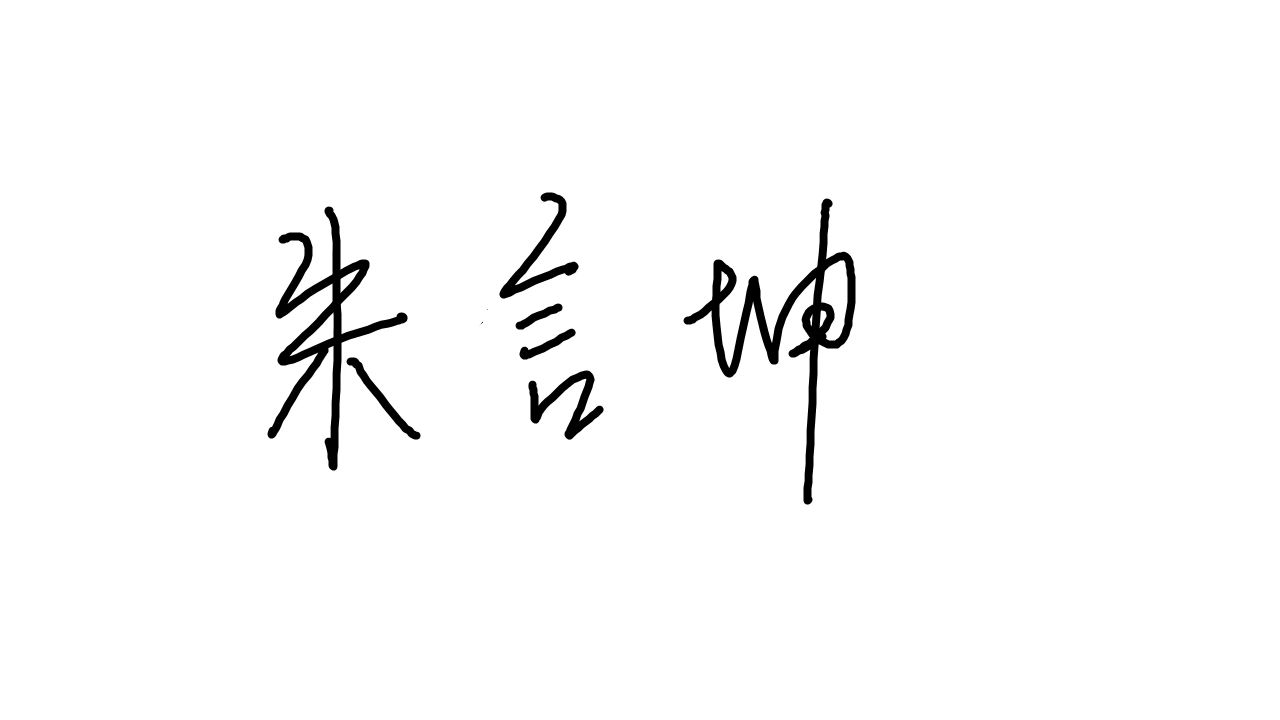 朱言坤